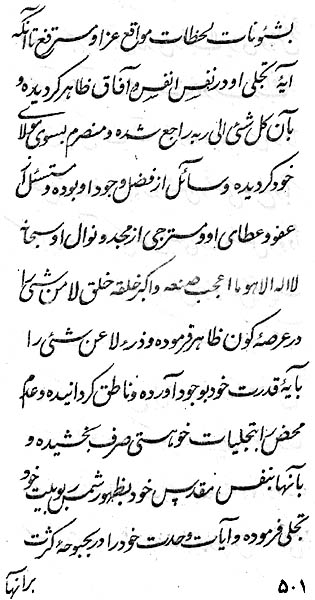 بشئونات لحظات مواقع عز او مسترفع تا آنکه
آیهٔ تجلی او در نفس انفس و آفاق ظاهر گردیده و
بآن کل شئ الی ربه راجع شده و منصرم بسوی مولای
خود گردیده و سائل از فضل وجود او بوده و مستسئل از
عفو و عطای او و مترجی از مجد و نوال او سبحانه
لا اله الا هو ما اعجب صنعه و اکبر خلقه خلق لا من شئ را
در عرصهٔ کون ظاهر فرموده و ذرء لا عن شئ را
بآیهٔ قدرت خود بوجود آورده و ناطق گردانیده و عدم
محض را بتجلیات خود هستی صرف بخشیده و
بآنها بنفس مقدس خود بظهور شمس ربوبیت خود
تجلی فرموده و آیات وحدت خود را در بحبوحهٔ کثرت
بر آنها
۵۰۱